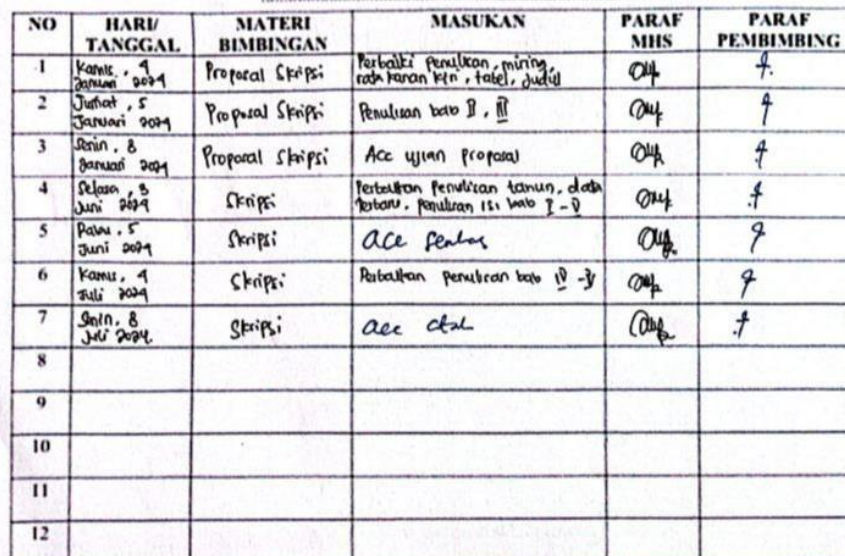 NO HARI/ TANGGAL MATERI BIMBINGAN MASUKAN PARAF MHS PARAF PEMBIMBING
1 Kamis, 4 Januari 2024 Proposal Skripsi Perbaiki Penulisan, miring, rata kanan kiri, tabel, judul
2 Jumat, 5 Januari 2024 Proposal Skripsi Penulisan bab II, III
3 Senin, 8 Januari 2024 Proposal Skripsi Acc ujian proposal
4 Selasa, Juni 2024 Skripsi Perbaikan Penulisan tahun, data terbaru, penulisan isi bab I - V
5 Rabu, 5 Juni 2024 Skripsi acc
6 Kamis, 4 Juli 2024 Skripsi Perbaikan penulisan bab IV - V
7 Senin, 8 Juli 2024 Skripsi acc
8
9
10
11
12